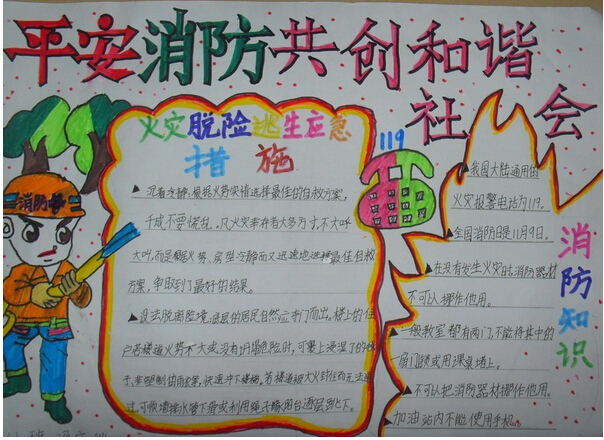 平安消防共创和谐
社会
火灾脱险逃生应急
措施
119
消防
▲沉着冷静,根据火势实情选择最佳的自救方案,
千成不要慌乱。只火案有有大多方寸,不大叫
大叫,而是根据火势、房型冷静而又迅速地选择最佳自救
方案,争取到了最好的结果。
▲设法脱离险境,底层的居民自然应夺门而出。楼上的住
户若楼道火势不大或没有坍塌危险时,可裹上浸湿了的
快速冲下楼梯。若楼道被大火封住而无法通
过,可顺墙排水管下滑或利用绳子沿阳台逐层跳下。
▲我国大陆通用的
火灾报警电话为119。
▲全国消防日是11月9日。
▲在没有发生火灾时,消防器材
不可以挪作他用。
▲一般教室都有两门,不能将其中的
一扇门锁或用课桌堵上。
▲不可以把消防器材挪作他用。
▲加油站内不能使用手机。
消防知识